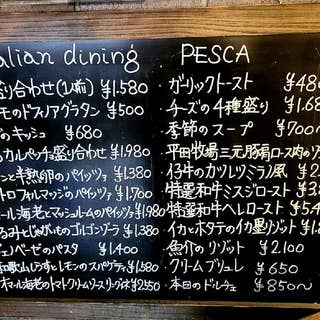 alian dining PESCA
盛り合わせ(1人前) ¥1.580
モのドフィノアグラタン ¥500
のキッシュ ¥680
カルパッチョ盛り合わせ ¥1.980
と半熟卵のパイッツァ ¥1.380
トロフォルマッジのパイッツァ ¥1.700
ール海老とマッシュルームのパイッツァ ¥1.980
るみとじがいものゴルゴンゾーラ ¥1.380
ジェノベーゼのパスタ ¥1.400
和歌山しらすとレモンのスパゲティ ¥1.580
オマール海老のトマトクリームソース ¥2.550
・ガーリックトースト ¥480
・チーズの4種盛り ¥1.68
・季節のスープ ¥700〜
・平田牧場三元豚肩ロース肉の
・仔牛のカツレツミラノ風 ¥2.
・特選和牛ミスジロースト ¥38
・特選和牛ヘレロースト ¥5.4
・イカとホタテのイカ墨リゾット ¥1.8
・魚介のリゾット ¥2.100
・クリームブリュレ ¥650
・本日のドルチェ ¥850〜